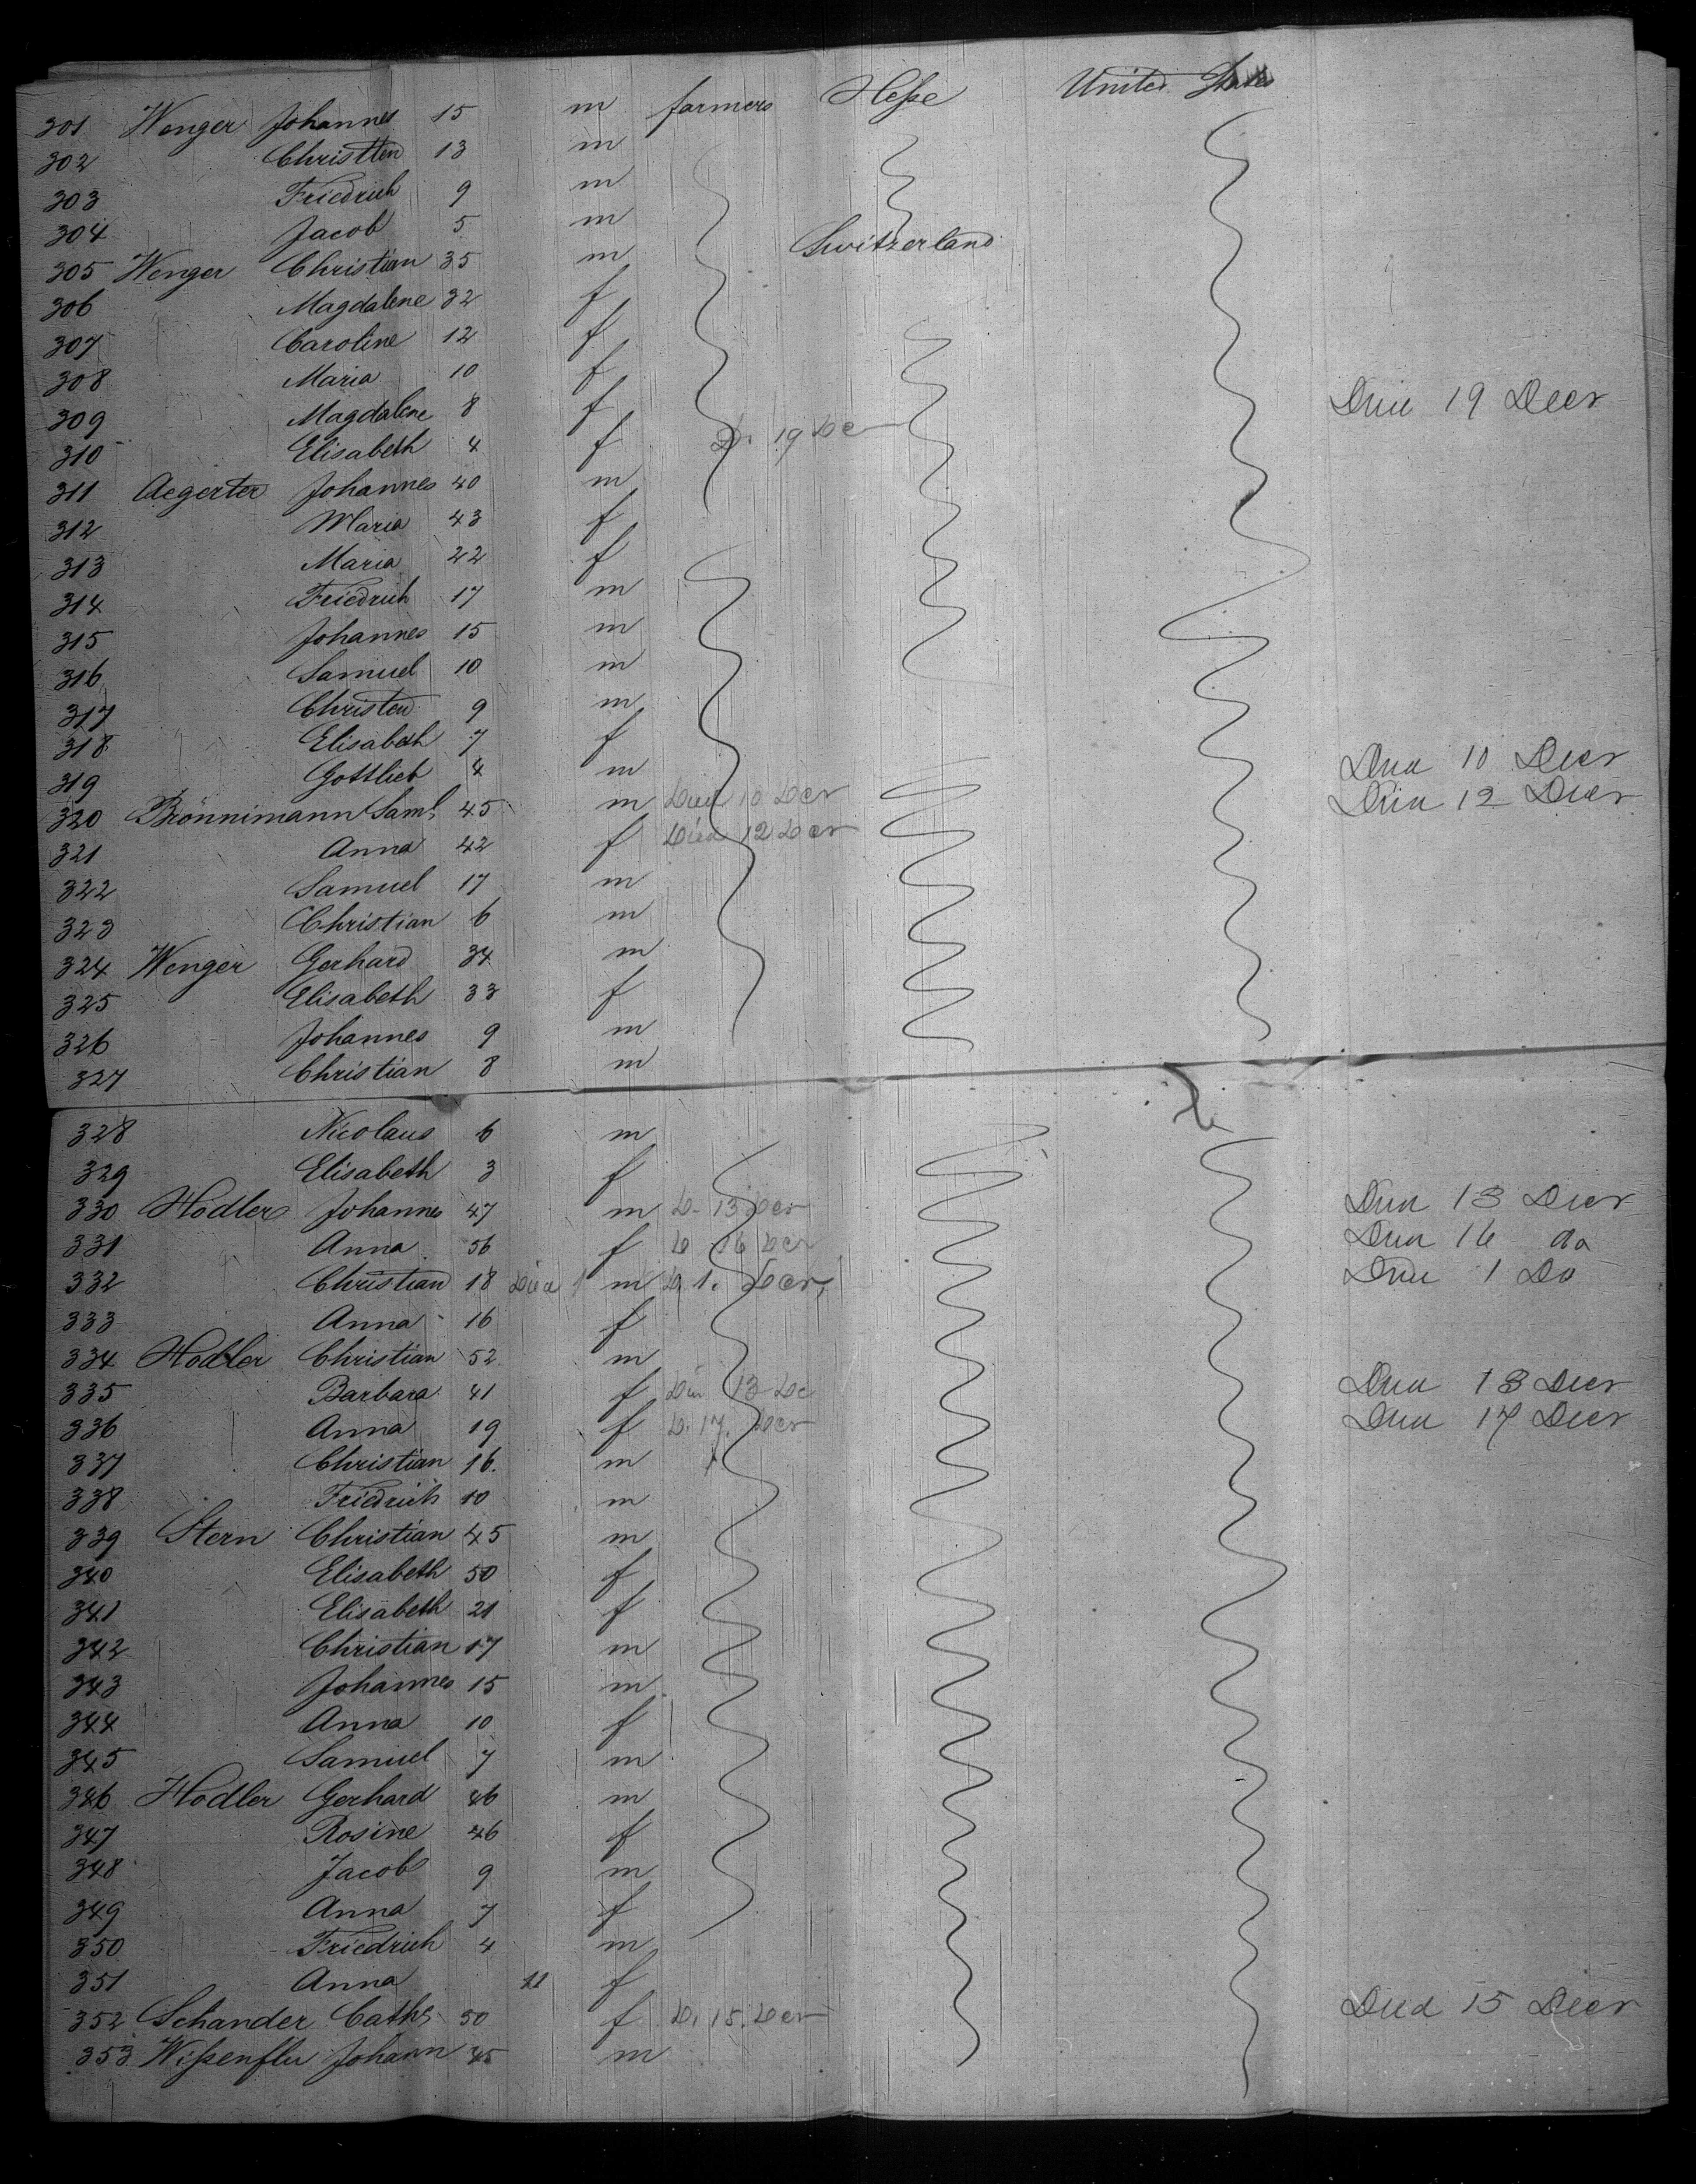 301 Wenger Johannes 15 m farmers Heſse United States
302 Christten 13 m
303 Friedrich 9 m
304 Jacob 5 m
305 Wenger Christian 35 m Switzerland
306 Magdalene 32 f
307 Caroline 12 f
308 Maria 10 f
309 Magdalene 8 f Died 19 Decr
310 Elisabeth 4 f D. 19 De
311 Aegerter Johannes 40 m
312 Maria 43 f
313 Maria 22 f
314 Friedrich 17 m
315 Johannes 15 m
316 Samuel 10 m
317 Christen 9 m
318 Elisabeth 7 f
319 Gottlieb 4 m Died 10 Decr
320 Brönnimann Saml. 45 m Died 10 Decr Died 12 Decr
321 Anna 42 f Died 12 Decr
322 Samuel 17 m
323 Christian 6 m
324 Wenger Gerhard 34 m
325 Elisabeth 33 f
326 Johannes 9 m
327 Christian 8 m
328 Nicolaus 6 m
329 Elisabeth 3 f
330 Hodler Johannes 47 m D. 13 Decr Died 13 Decr
331 Anna 56 f D 16 Decr Died 16 do
332 Christian 18 Died 1 m D. 1. Decr Died 1 Do
333 Anna 16 f
334 Hodler Christian 52 m
335 Barbara 41 f Die 13 De Died 13 Decr
336 Anna 19 f D. 17. Decr Died 17 Decr
337 Christian 16. m
338 Friedrich 10 m
339 Stern Christian 45 m
340 Elisabeth 50 f
341 Elisabeth 21 f
342 Christian 17 m
343 Johannes 15 m
344 Anna 10 f
345 Samuel 7 m
346 Hodler Gerhard 46 m
347 Rosine 46 f
348 Jacob 9 m
349 Anna 7 f
350 Friedrich 4 m
351 Anna 11 f
352 Schander Cath. 50 f D. 15. Decr Died 15 Decr
353 Wiſsenflu Johann 45 m